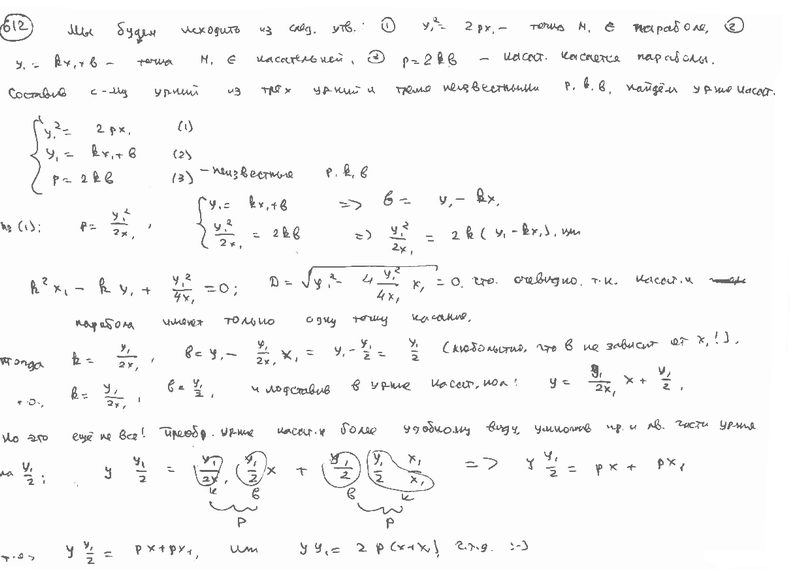 612 Мы будем исходить из след. утв.: ① y₁² = 2px₁ – точка M₁ ∈ параболе, ②
y₁ = kx₁+b – точка M₁ ∈ касательной, ③ p = 2kb – касат. касается параболы.
Составив с-му ур-ний из трёх ур-ний и тремя неизвестными p, k, b, найдём ур-ие касат.
y₁² = 2px₁ (1)
y₁ = kx₁+b (2)
p = 2kb (3) – неизвестные p, k, b
из (1): p = y₁²/2x₁, { y₁ = kx₁+b => b = y₁ - kx₁
y₁²/2x₁ = 2kb => y₁²/2x₁ = 2k(y₁ - kx₁), или
k²x₁ - ky₁ + y₁²/4x₁ = 0; D = √(y₁² - 4 y₁²/4x₁ x₁) = 0, что очевидно, т.к. касат. и
парабола имеют только одну точку касания.
тогда k = y₁/2x₁, b = y₁ - y₁/2x₁ x₁ = y₁ - y₁/2 = y₁/2 (любопытно, что b не зависит от x₁!),
т.о., k = y₁/2x₁, b = y₁/2, и подставив в ур-ие касат., пол: y = y₁/2x₁ x + y₁/2,
Но это ещё не все! Преобр. ур-ие касат. к более удобному виду, умножив пр. и лв. части ур-ия
на y₁/2; y y₁/2 = y₁/2x₁ y₁/2 x + y₁/2 y₁/2 x₁/x₁ => y y₁/2 = px + px₁
k b b k
p p
т.о., y y₁/2 = px+px₁, или yy₁ = 2p(x+x₁) ч.т.д. :-)